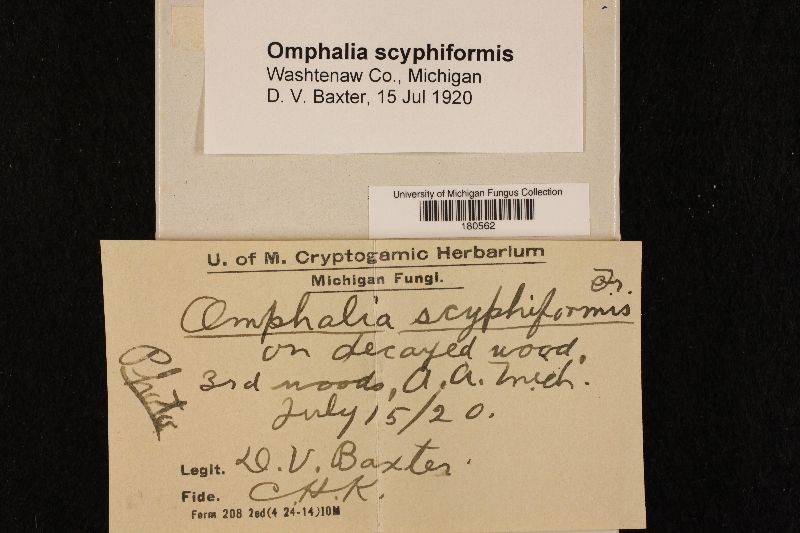 Omphalia scyphiformis
Washtenaw Co., Michigan
D. V. Baxter, 15 Jul 1920
University of Michigan Fungus Collection
180562
U. of M. Cryptogamic Herbarium
Michigan Fungi.
Omphalia scyphiformis Fr.
on decayed wood,
3rd woods, A. A. Mich.
July 15/20.
Photo
Legit. D. V. Baxter.
Fide. C.H.K.
Form 208 2ed(4 24-14)10M